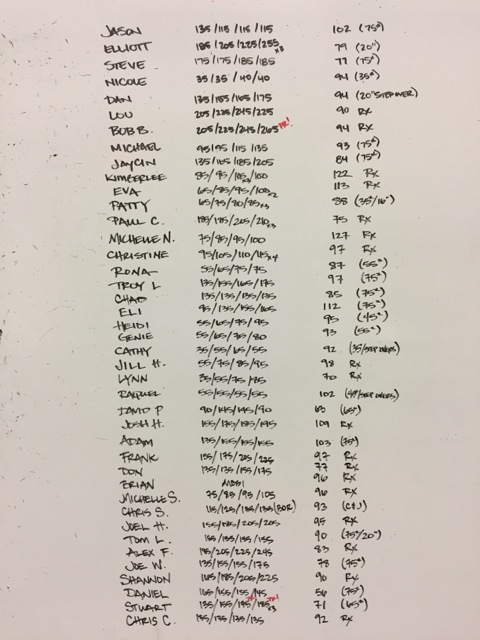 JASON 135/115/115/115 102 (75#)
ELLIOTT 185/205/225/255x3 79 (20")
STEVE 175/175/185/185 77 (75#)
NICOLE 35/35/40/40 94 (35#)
DAN 135/155/165/175 94 (20" STEP OVER)
LOU 205/225/245/225 90 RX
BOB B. 205/225/245/265 PR! 94 RX
MICHAEL 95/95/115/135 93 (75#)
JAYCIN 135/165/185/205 84 (75#)
KIMBERLEE 85/95/115x3/100 122 RX
EVA 65/85/95/100x2 113 RX
PATTY 65/75/80/85x3 88 (35#/16")
PAUL C. 185/195/205/210x3 75 RX
MICHELLE N. 75/85/95/100 127 RX
CHRISTINE 95/105/110/115x4 97 RX
RONA 55/65/75/75 87 (55#)
TROY L 135/155/165/175 97 (75#)
CHAD 135/135/135/135 85 (75#)
ELI 95/135/155/165 112 (75#)
HEIDI 55/65/75/95 95 (45#)
GENIE 55/65/75/80 93 (55#)
CATHY 35/55/65/55 92 (35/STEP OVERS)
JILL H. 55/75/85/95 98 RX
LYNN 35/55/75/85 70 RX
RAQUEL 55/55/55/55 102 (45/STEP OVERS)
DAVID P 90/145/145/90 (65#)
JOSH H. 155/175/185/195 109 RX
ADAM 135/155/155/155 103 (75#)
FRANK 155/175/205/225 97 RX
DON 135/135/155/175 77 RX
BRIAN 96 RX
MICHELLE S. 75/85/95/105 96 RX
CHRIS S. 115/125/135/135 (BOR) 93 (C&J)
JOEL H. 155/185/205/205 95 RX
TOM L. 155/155/155/155 90 (75#/20")
ALEX F. 185/205/225/245 83 RX
JOE W. 135/155/155/175 78 (75#)
SHANNON 165/185/205/225 90 RX
DANIEL 165/165/155/145 56 (75#)
STUART 135/155/175/185x3 71 (65#)
CHRIS C. 135/135/135/135 92 RX